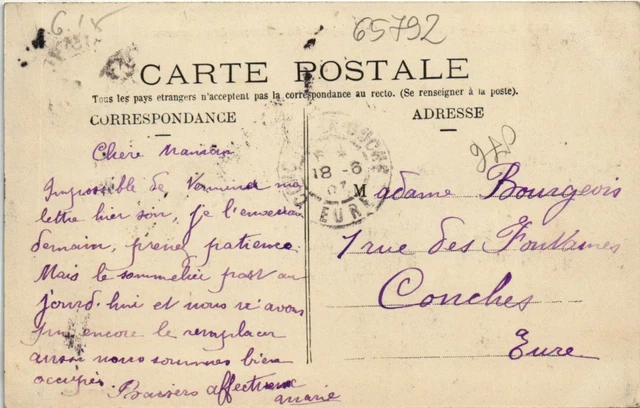 65792
CARTE POSTALE
Tous les pays etrangers n'acceptent pas la correspondance au recto. (Se renseigner à la poste).
CORRESPONDANCE
ADRESSE
940
Chère Maman
Impossible de ma
lettre hier soir, je l'enverrai
demain, prend patience.
Mais le sommelier part au
jourd'hui et nous n'avons
pu encore le remplacer
aussi nous sommes bien
occupés. Baisers affectueux
Marie
18 -6
07
EURE
Madame Bourgeois
1 rue des Fontaines
Conches
Eure